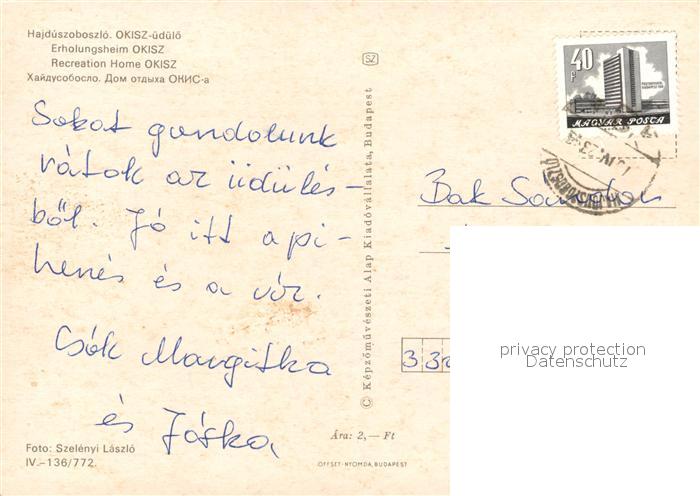 Hajdúszoboszló. OKISZ-üdülő
Erholungsheim OKISZ
Recreation Home OKISZ
Хайдусобосло. Дом отдыха ОКИС-а
Sokat gondolunk
rátok az üdülés-
ből. Jó itt a pi-
henés és a víz.
Csók Margitka
és Jóska
Foto: Szelényi László
IV.–136/772.
SZ
© Képzőművészeti Alap Kiadóvállalata, Budapest
Ára: 2,— Ft
OFFSET-NYOMDA, BUDAPEST
40
f
MAGYAR POSTA
Bak Sándor
privacy protection
Datenschutz